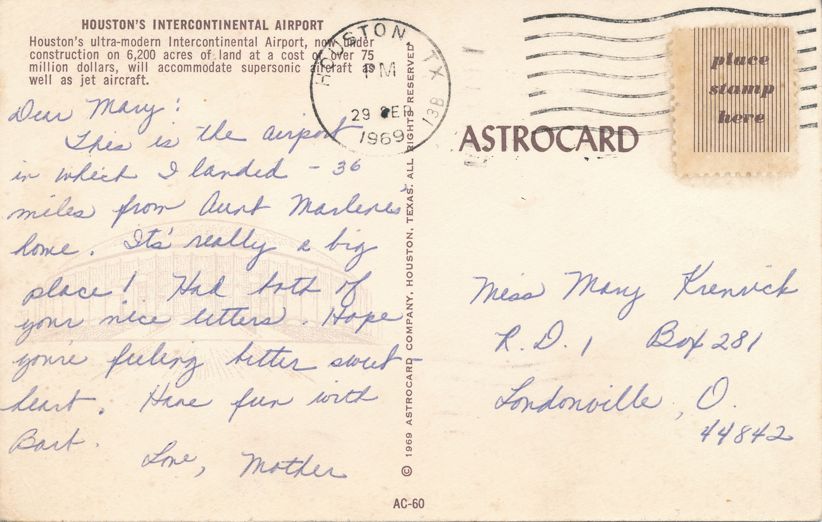 HOUSTON'S INTERCONTINENTAL AIRPORT
Houston's ultra-modern Intercontinental Airport, now under
construction on 6,200 acres of land at a cost of over 75
million dollars, will accommodate supersonic aircraft as
well as jet aircraft.
Dear Mary:
This is the airport
in which I landed - 36
miles from Aunt Marlenes'
home. Its' really a big
place! Had both of
your nice letters. Hope
you're feeling better sweet-
heart. Have fun with
Bart.
Love, Mother
HOUSTON, TX
PM
29 SEP
1969
13B
© 1969 ASTROCARD COMPANY, HOUSTON, TEXAS. ALL RIGHTS RESERVED
AC-60
ASTROCARD
place
stamp
here
Miss Mary Krenrick
R.D. 1 Box 281
Londonville, O.
44842